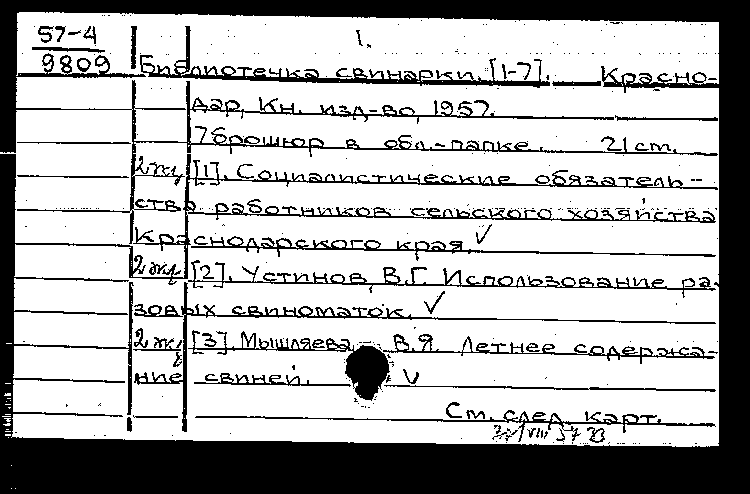 57-4
9809
1.
Библиотечка свинарки. [1-7]. Красно-
дар, Кн. изд-во, 1957.
7 брошюр в обл.-папке. 21 cm.
2 экз [1]. Социалистические обязатель-
ства работников сельского хозяйства
Краснодарского края. ✓
2 экз [2]. Устинов, В.Г. Использование ра-
зовых свиноматок. ✓
2 экз [3]. Мышляева, В.Я. Летнее содержа-
ние свиней. ✓
См. след. карт.
VIII 57